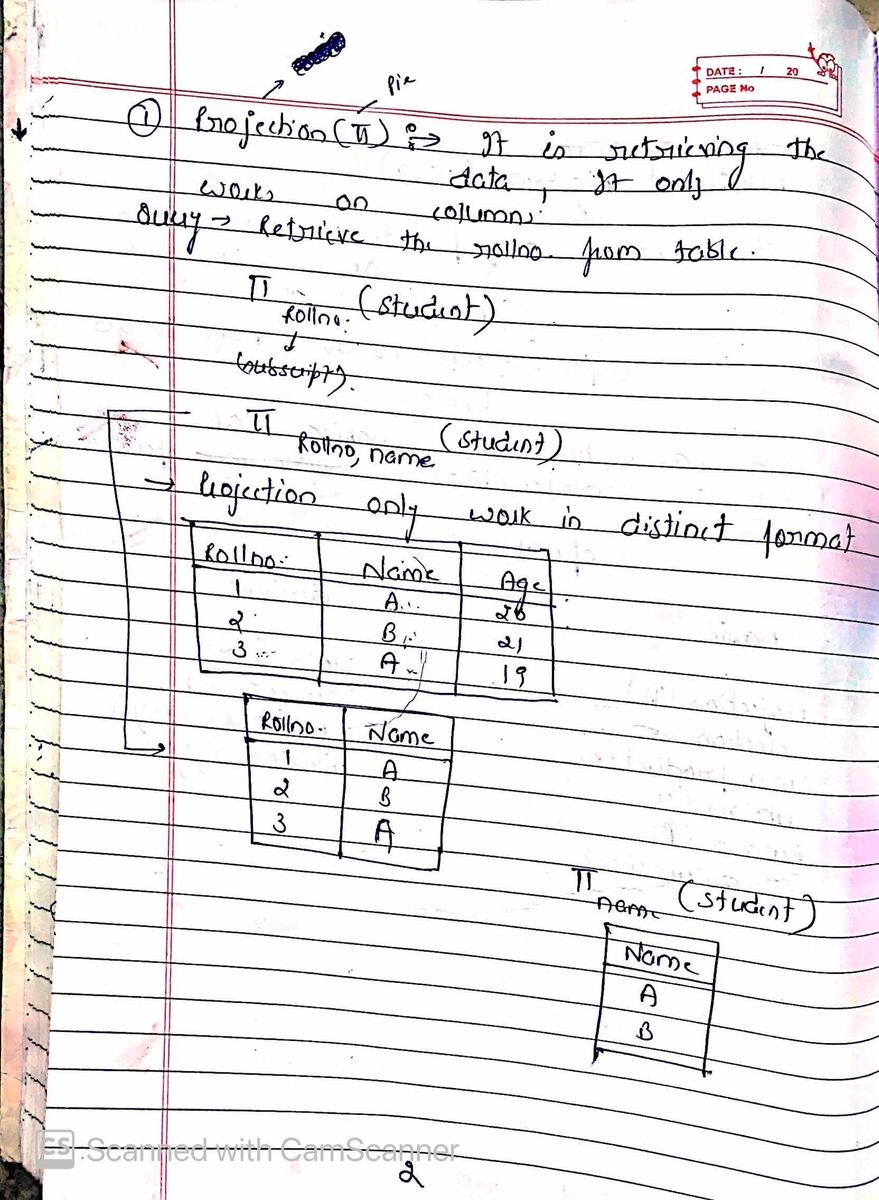 pie
DATE: / 20
PAGE No
① Projection (π) :→ It is retrieving the
data, It only
works on columns.
Query → Retrieve the rollno. from table.
π Rollno. (student)
(subscript).
π Rollno, name (student)
→ Projection only work in distinct format
Rollno. Name Age
1 A
2 B 21
3 A 19
Rollno. Name
1 A
2 B
3 A
π name (student)
Name
A
B
CS Scanned with CamScanner
2